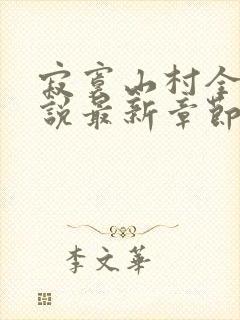 寂寞山村全
說最新章節
李文華